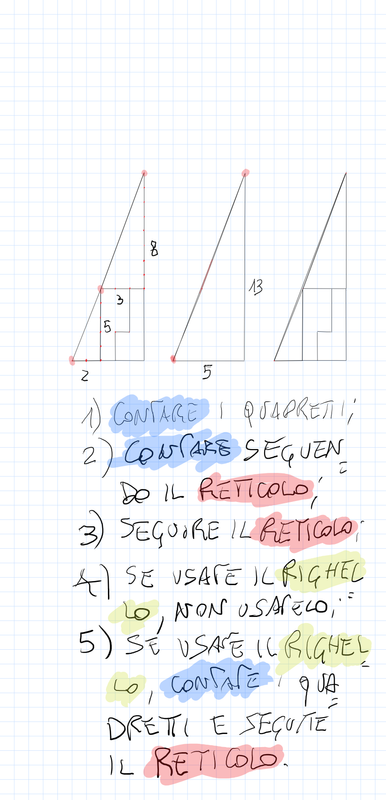 8
3
5
2
13
5
1) CONTARE I QUADRETTI;
2) CONTARE SEGUEN=
DO IL RETICOLO;
3) SEGUIRE IL RETICOLO;
4) SE USATE IL RIGHEL=
LO, NON USATELO;
5) SE USATE IL RIGHEL=
LO, CONTATE I QUA=
DRETTI E SEGUITE
IL RETICOLO.